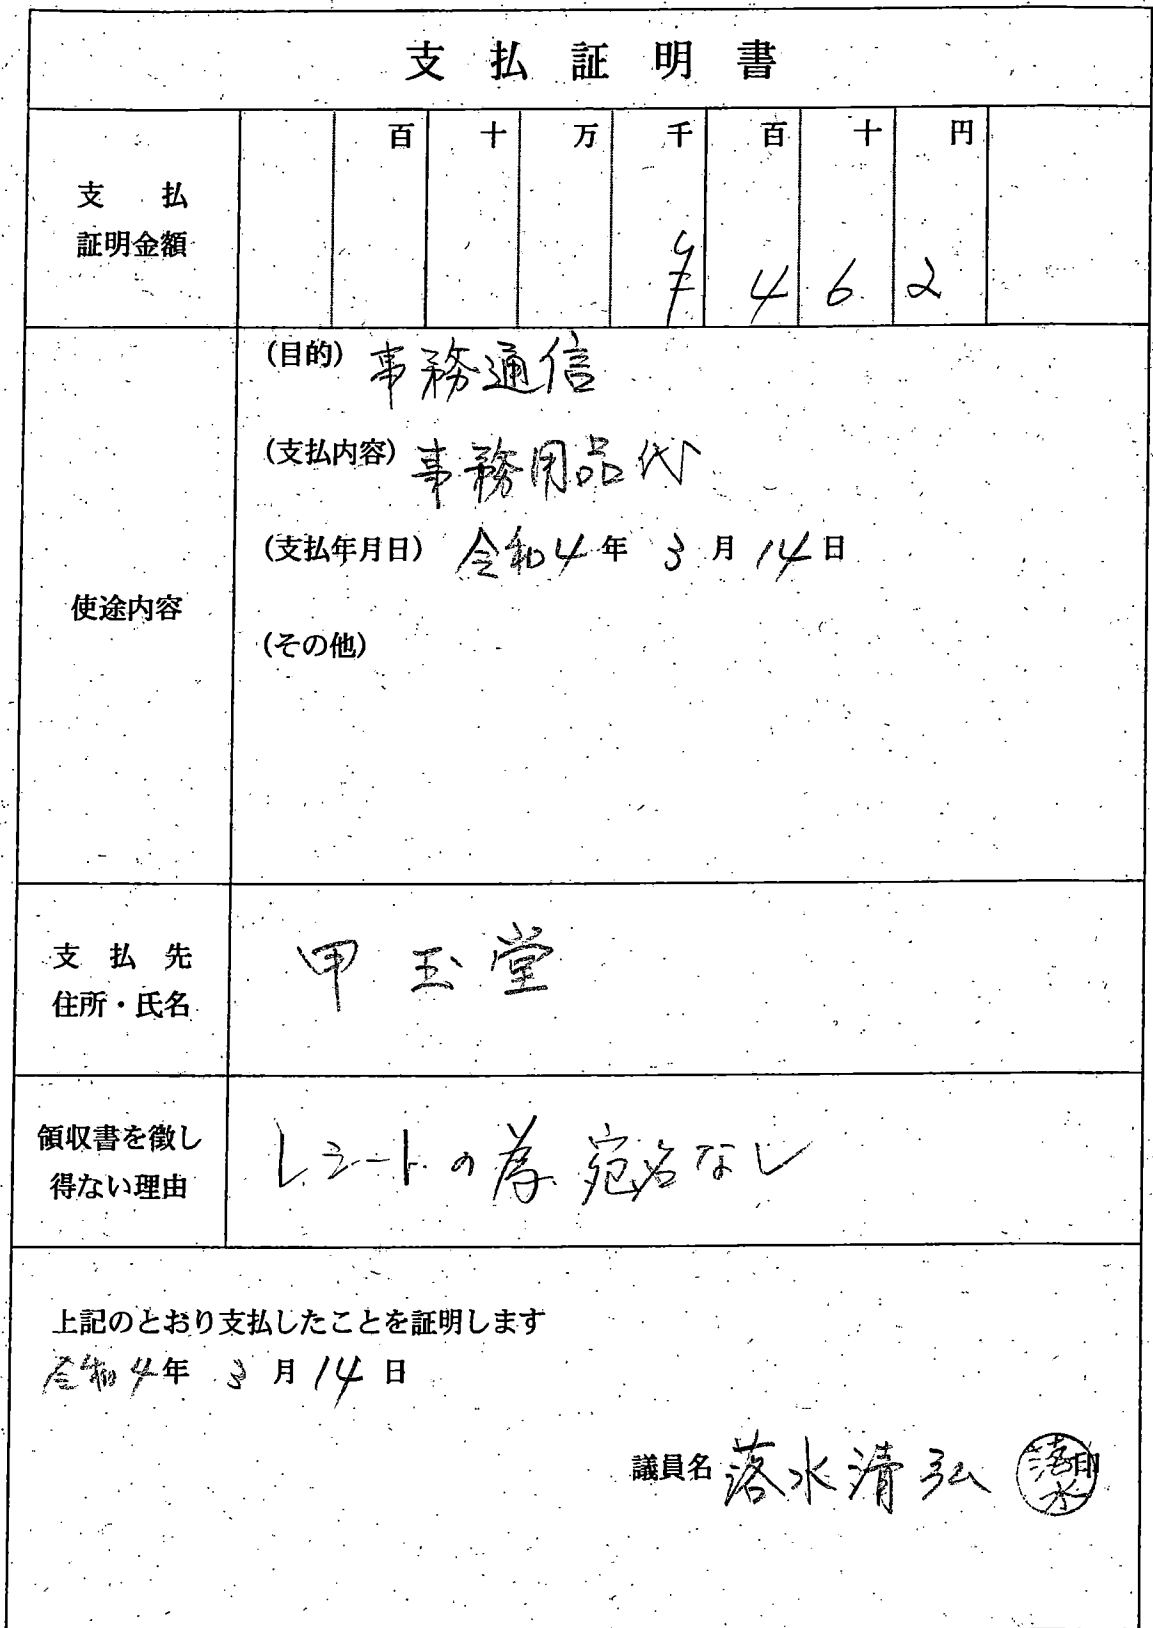 支払証明書
百 十 万 千 百 十 円
支払
証明金額
¥ 4 6 2
(目的) 事務通信
(支払内容) 事務用品代
(支払年月日) 令和4年 3月 14日
使途内容
(その他)
支払先
住所・氏名
甲玉堂
領収書を徴し
得ない理由
レシートの為 宛名なし
上記のとおり支払したことを証明します
令和4年 3月 14日
議員名 落水清弘 印
落水